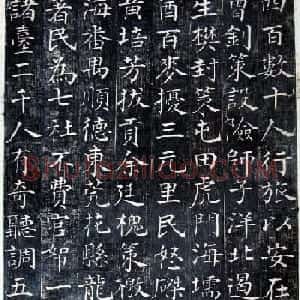 四百數十人行旅以安在
曾釗策設險師子洋北遏
生樊封策屯田虎門海壖
酉百麥擾三元里民怒磔
黃培芳拔貢余廷槐策橫
海番禺順德東莞花縣龍
著民為七社不費官帑一
諸臺二千人有奇聽調五